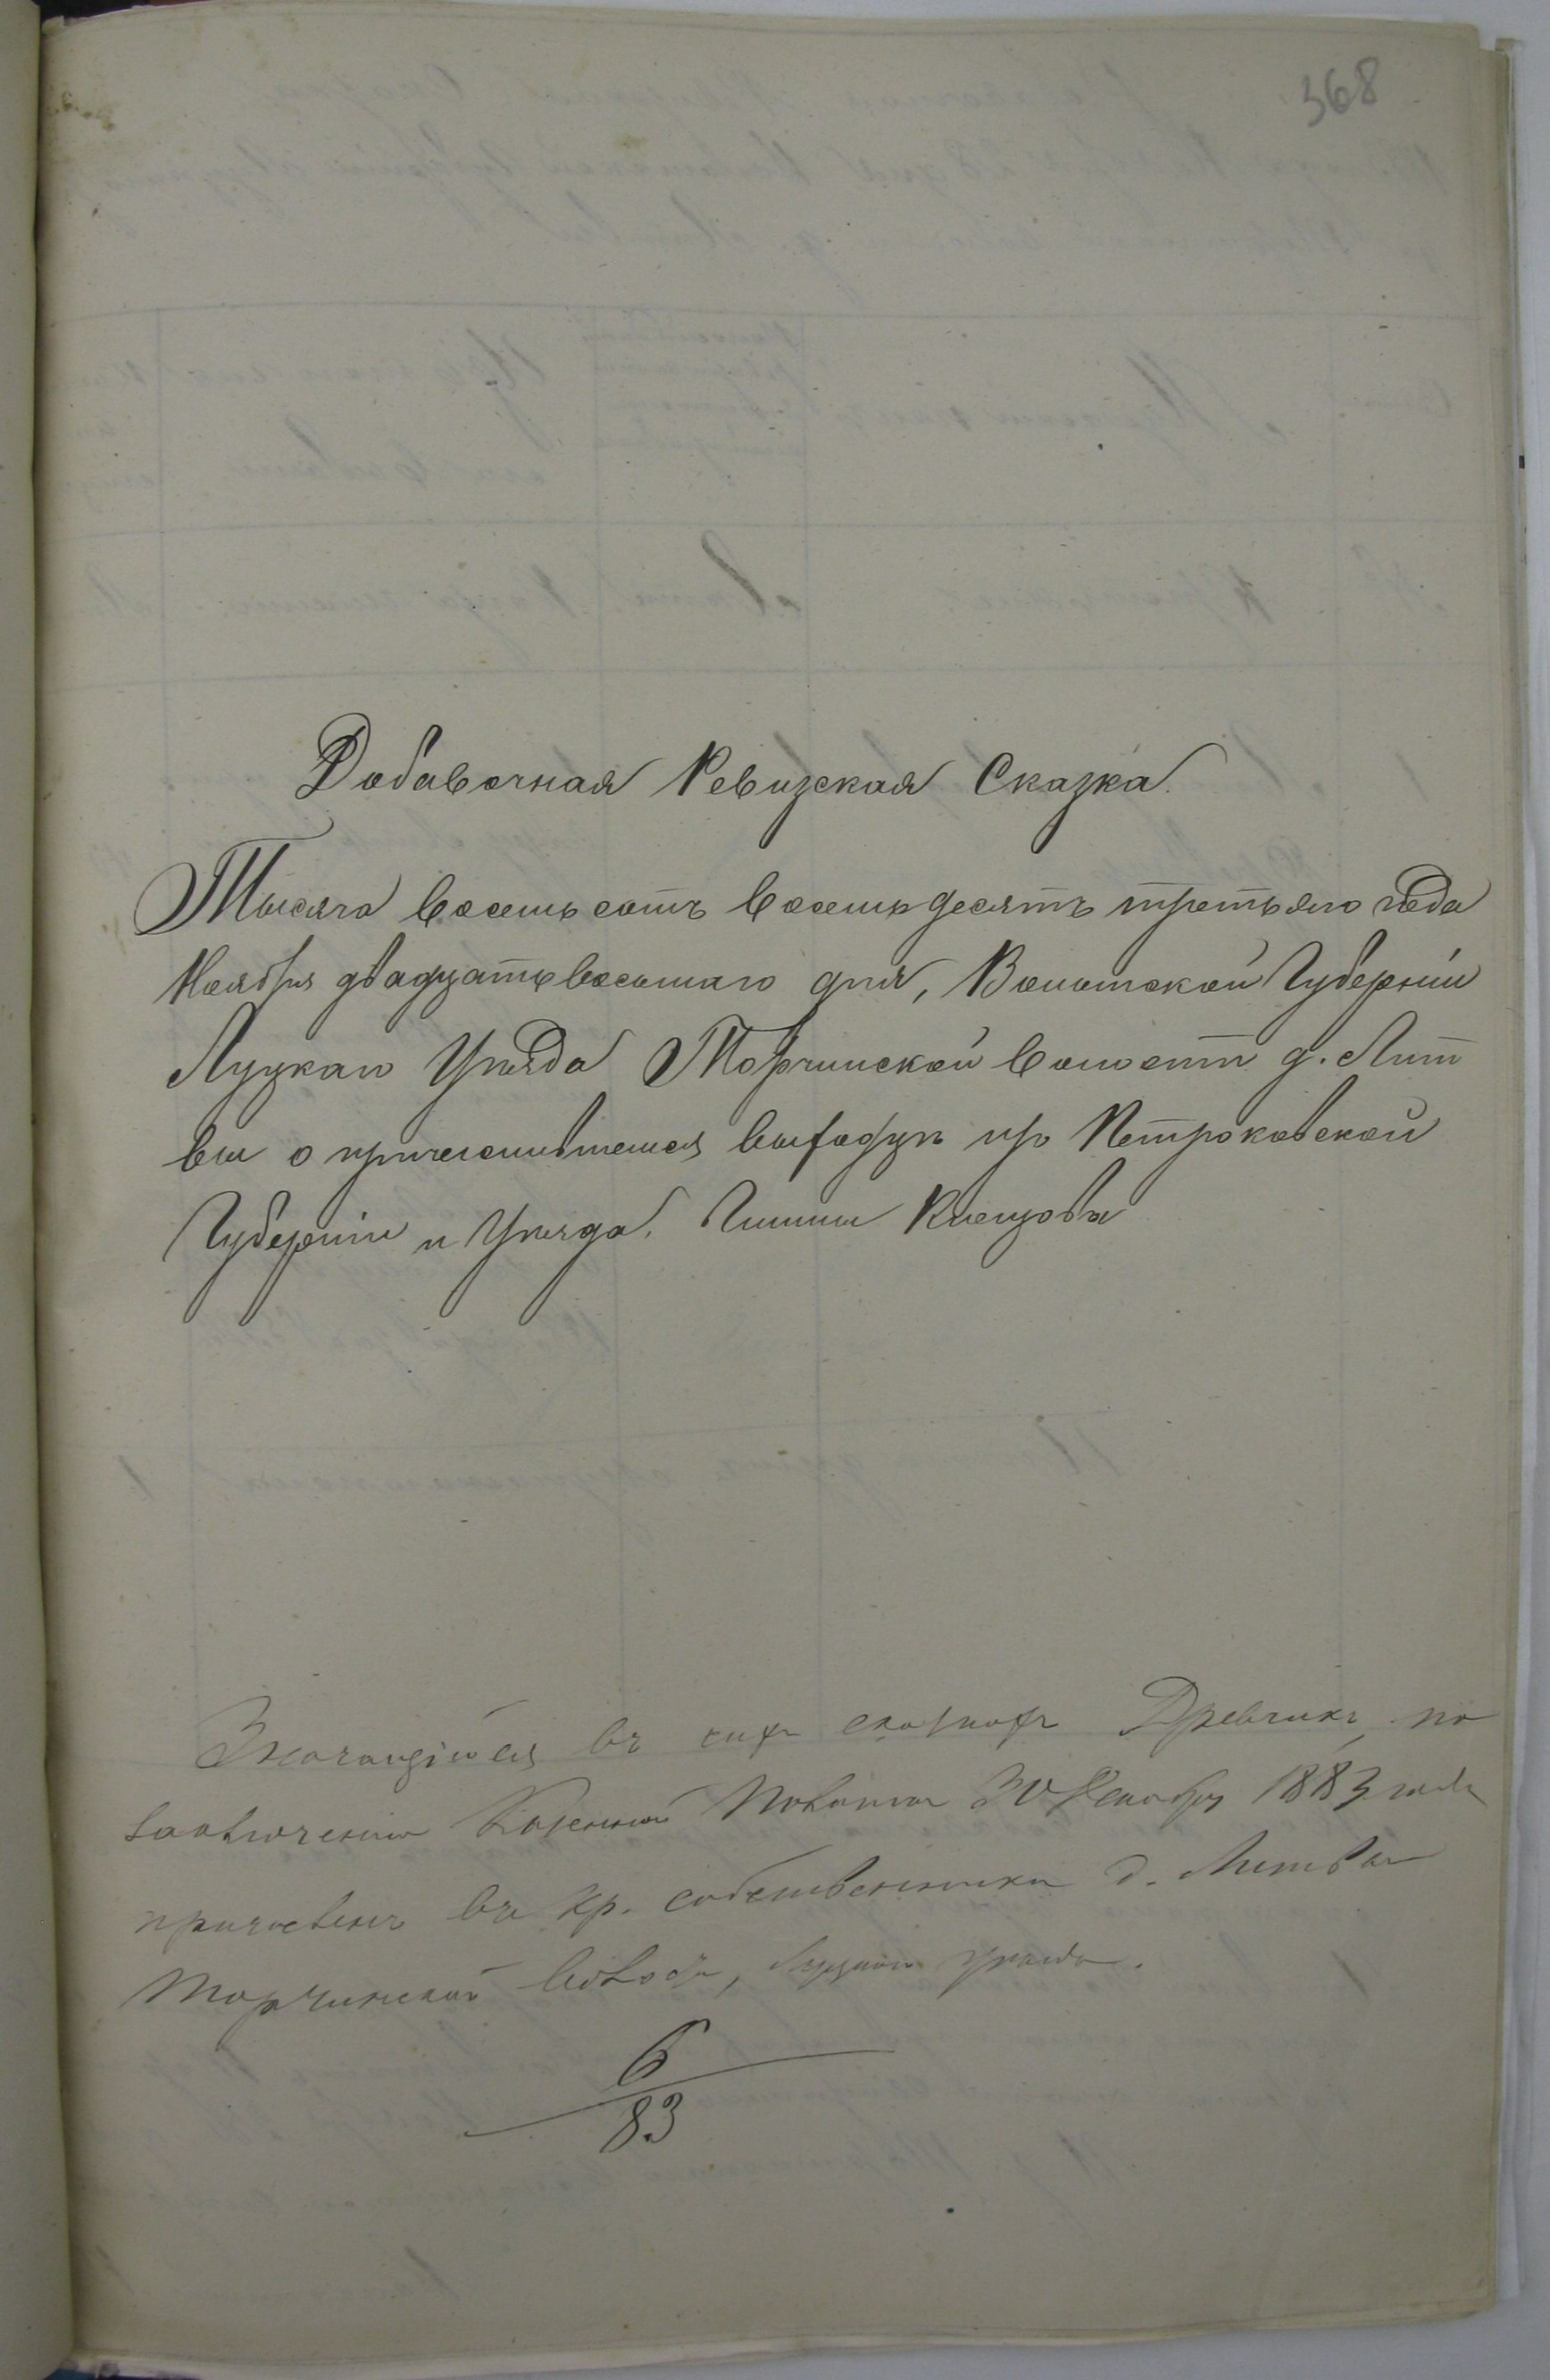 368
Добавочная Ревизская Сказка.
Тысяча восемьсотъ восемьдесятъ третьяго года
Ноября двадцатьвосьмаго дня, Волынской Губерніи
Луцкаго Уѣзда Торчинской волости д. Лит
вы о причислившемся выходцѣ изъ Петроковской
Губерніи и Уѣзда. Гмины Клещова
Значащійся въ сихъ сказкахъ Древникъ, по
заключенію Казенной Палаты 30 Декабря 1883 года
причисленъ въ кр. собственники д. Литвы
Торчинской волости, Луцкаго уѣзда.
6
83